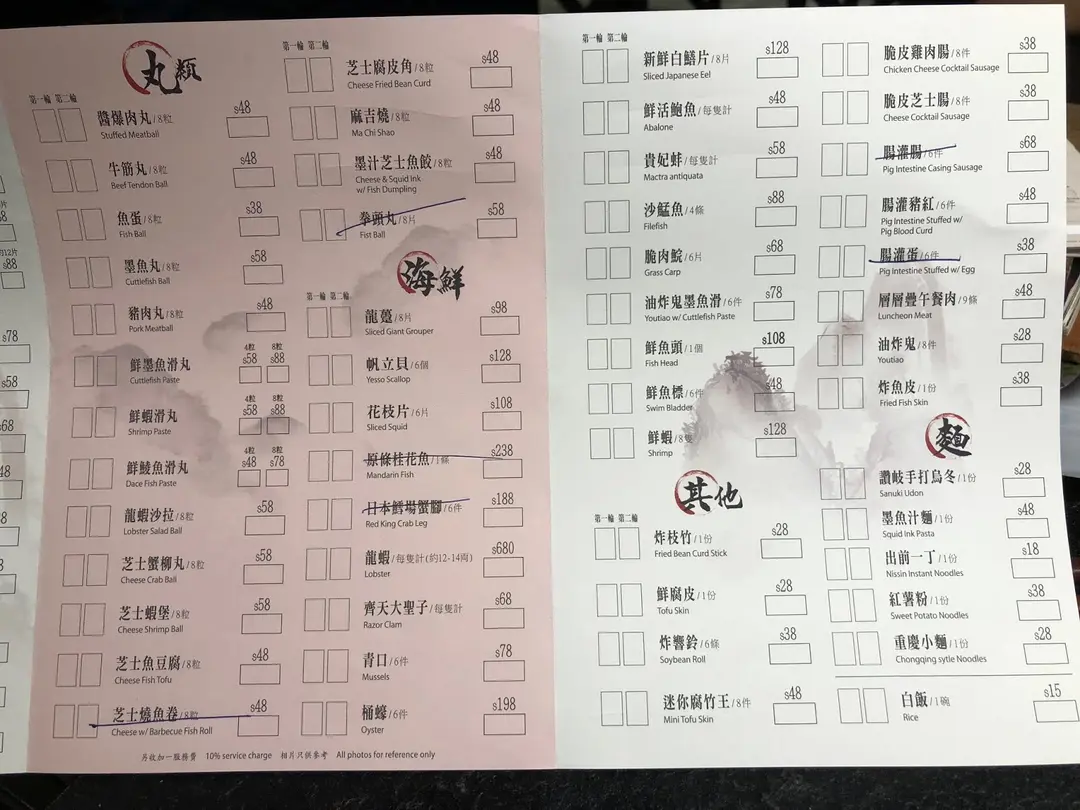 丸類
第一輪 第二輪
醬爆肉丸/8粒 $48
Stuffed Meatball
牛筋丸/8粒 $48
Beef Tendon Ball
魚蛋/8粒 $38
Fish Ball
墨魚丸/8粒 $58
Cuttlefish Ball
豬肉丸/8粒 $48
Pork Meatball
鮮墨魚滑丸 4粒 $58 8粒 $88
Cuttlefish Paste
鮮蝦滑丸 4粒 $58 8粒 $88
Shrimp Paste
鮮鯪魚滑丸 4粒 $48 8粒 $78
Dace Fish Paste
龍蝦沙拉/8粒 $58
Lobster Salad Ball
芝士蟹柳丸/8粒 $58
Cheese Crab Ball
芝士蝦堡/8粒 $58
Cheese Shrimp Ball
芝士魚豆腐/8粒 $48
Cheese Fish Tofu
芝士燒魚卷/8粒 $48
Cheese w/ Barbecue Fish Roll
第一輪 第二輪
芝士腐皮角/8粒 $48
Cheese Fried Bean Curd
麻吉燒/8粒 $48
Ma Chi Shao
墨汁芝士魚餃/8粒 $48
Cheese & Squid Ink
w/ Fish Dumpling
拳頭丸/8片 $58
Fist Ball
海鮮
第一輪 第二輪
龍躉/8片 $98
Sliced Giant Grouper
帆立貝/6個 $128
Yesso Scallop
花枝片/6片 $108
Sliced Squid
原條桂花魚/1條 $238
Mandarin Fish
日本鱈場蟹腳/6件 $188
Red King Crab Leg
龍蝦/每隻計(約12-14両) $680
Lobster
齊天大聖子/每隻計 $68
Razor Clam
青口/6件 $78
Mussels
桶蠔/6件 $198
Oyster
另收加一服務費 10% service charge 相片只供參考 All photos for reference only
第一輪 第二輪
新鮮白鱔片/8片 $128
Sliced Japanese Eel
鮮活鮑魚/每隻計 $48
Abalone
貴妃蚌/每隻計 $58
Mactra antiquata
沙鯭魚/4條 $88
Filefish
脆肉鯇/6片 $68
Grass Carp
油炸鬼墨魚滑/6件 $78
Youtiao w/ Cuttlefish Paste
鮮魚頭/1個 $108
Fish Head
鮮魚標/6件 $48
Swim Bladder
鮮蝦/8隻 $128
Shrimp
其他
第一輪 第二輪
炸枝竹/1份 $28
Fried Bean Curd Stick
鮮腐皮/1份 $28
Tofu Skin
炸響鈴/6條 $38
Soybean Roll
迷你腐竹王/8件 $48
Mini Tofu Skin
脆皮雞肉腸/8件 $38
Chicken Cheese Cocktail Sausage
脆皮芝士腸/8件 $38
Cheese Cocktail Sausage
腸灌腸/6件 $68
Pig Intestine Casing Sausage
腸灌豬紅/6件 $48
Pig Intestine Stuffed w/
Pig Blood Curd
腸灌蛋/6件 $38
Pig Intestine Stuffed w/ Egg
層層疊午餐肉/9條 $48
Luncheon Meat
油炸鬼/8件 $28
Youtiao
炸魚皮/1份 $38
Fried Fish Skin
麵
讚岐手打烏冬/1份 $28
Sanuki Udon
墨魚汁麵/1份 $48
Squid Ink Pasta
出前一丁/1份 $18
Nissin Instant Noodles
紅薯粉/1份 $38
Sweet Potato Noodles
重慶小麵/1份 $28
Chongqing sytle Noodles
白飯/1碗 $15
Rice